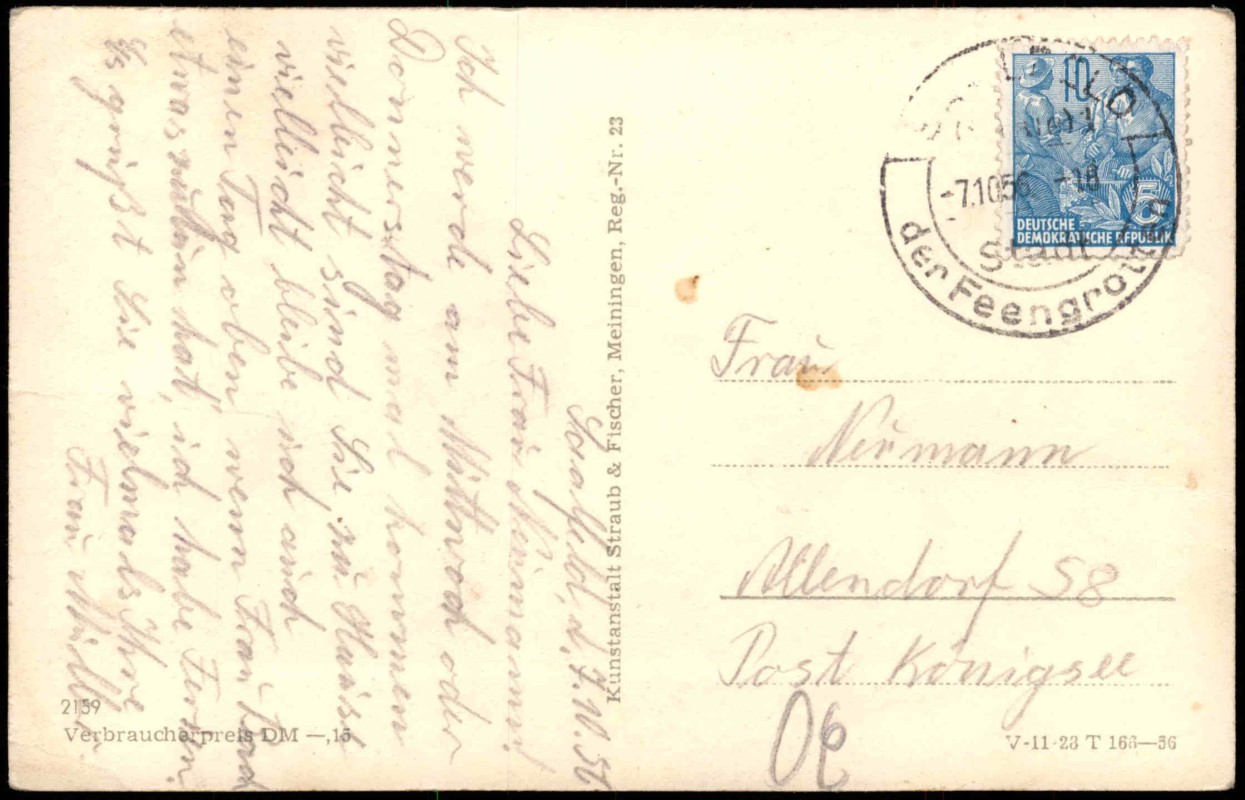 Saalfeld, d. 7.10.56
Liebe Frau Neumann!
Ich werde am Mittwoch oder
Donnerstag mal kommen
vielleicht sind Sie zu Hause
vielleicht bleibe ich auch
einen Tag oben wenn Frau
etwas hat, ich habe Ferien.
Es grüßt Sie vielmals Ihre
Frau Müller
2159
Verbraucherpreis DM —,15
Kunstanstalt Straub & Fischer, Meiningen, Reg.-Nr. 23
10
5
DEUTSCHE
DEMOKRATISCHE REPUBLIK
-7.10.56 -18
Stadt
der Feengrotten
Frau
Neumann
Allendorf 58
Post Königsee
06
V-11-28 T 166—56